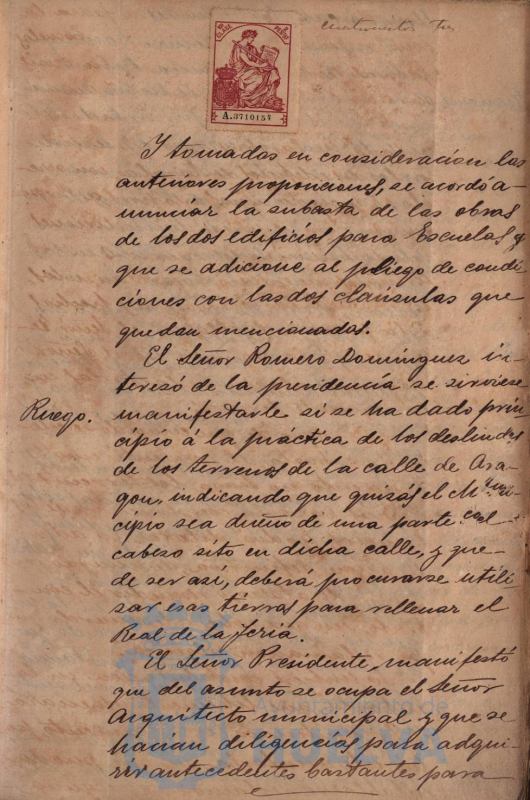 cuatrocientos tres
A.3710157
Y tomadas en consideracion las
anteriores proposiciones, se acordó a-
nunciar la subasta de las obras
de los dos edificios para Escuelas y
que se adicione al pliego de condi
ciones con las dos claúsulas que
quedan mencionadas.
El Señor Romero Domínguez in-
teresó de la presidencia se sirviese
Ruego.
manifestarle si se ha dado prin
cipio á la práctica de los deslindes
de los terrenos de la calle de Ara-
gon, indicando que quizás el Muni-
cipio sea dueño de una parte del
cabezo sito en dicha calle, y que
de ser así, deberá procurarse utili-
zar esas tierras para rellenar el
Real de la feria.
El Señor Presidente, manifestó
que del asunto se ocupa el Señor
Arquitecto municipal y que se
hacian diligencias para adqui-
rir antecedentes bastantes para
Ayuntamiento de
HUELVA